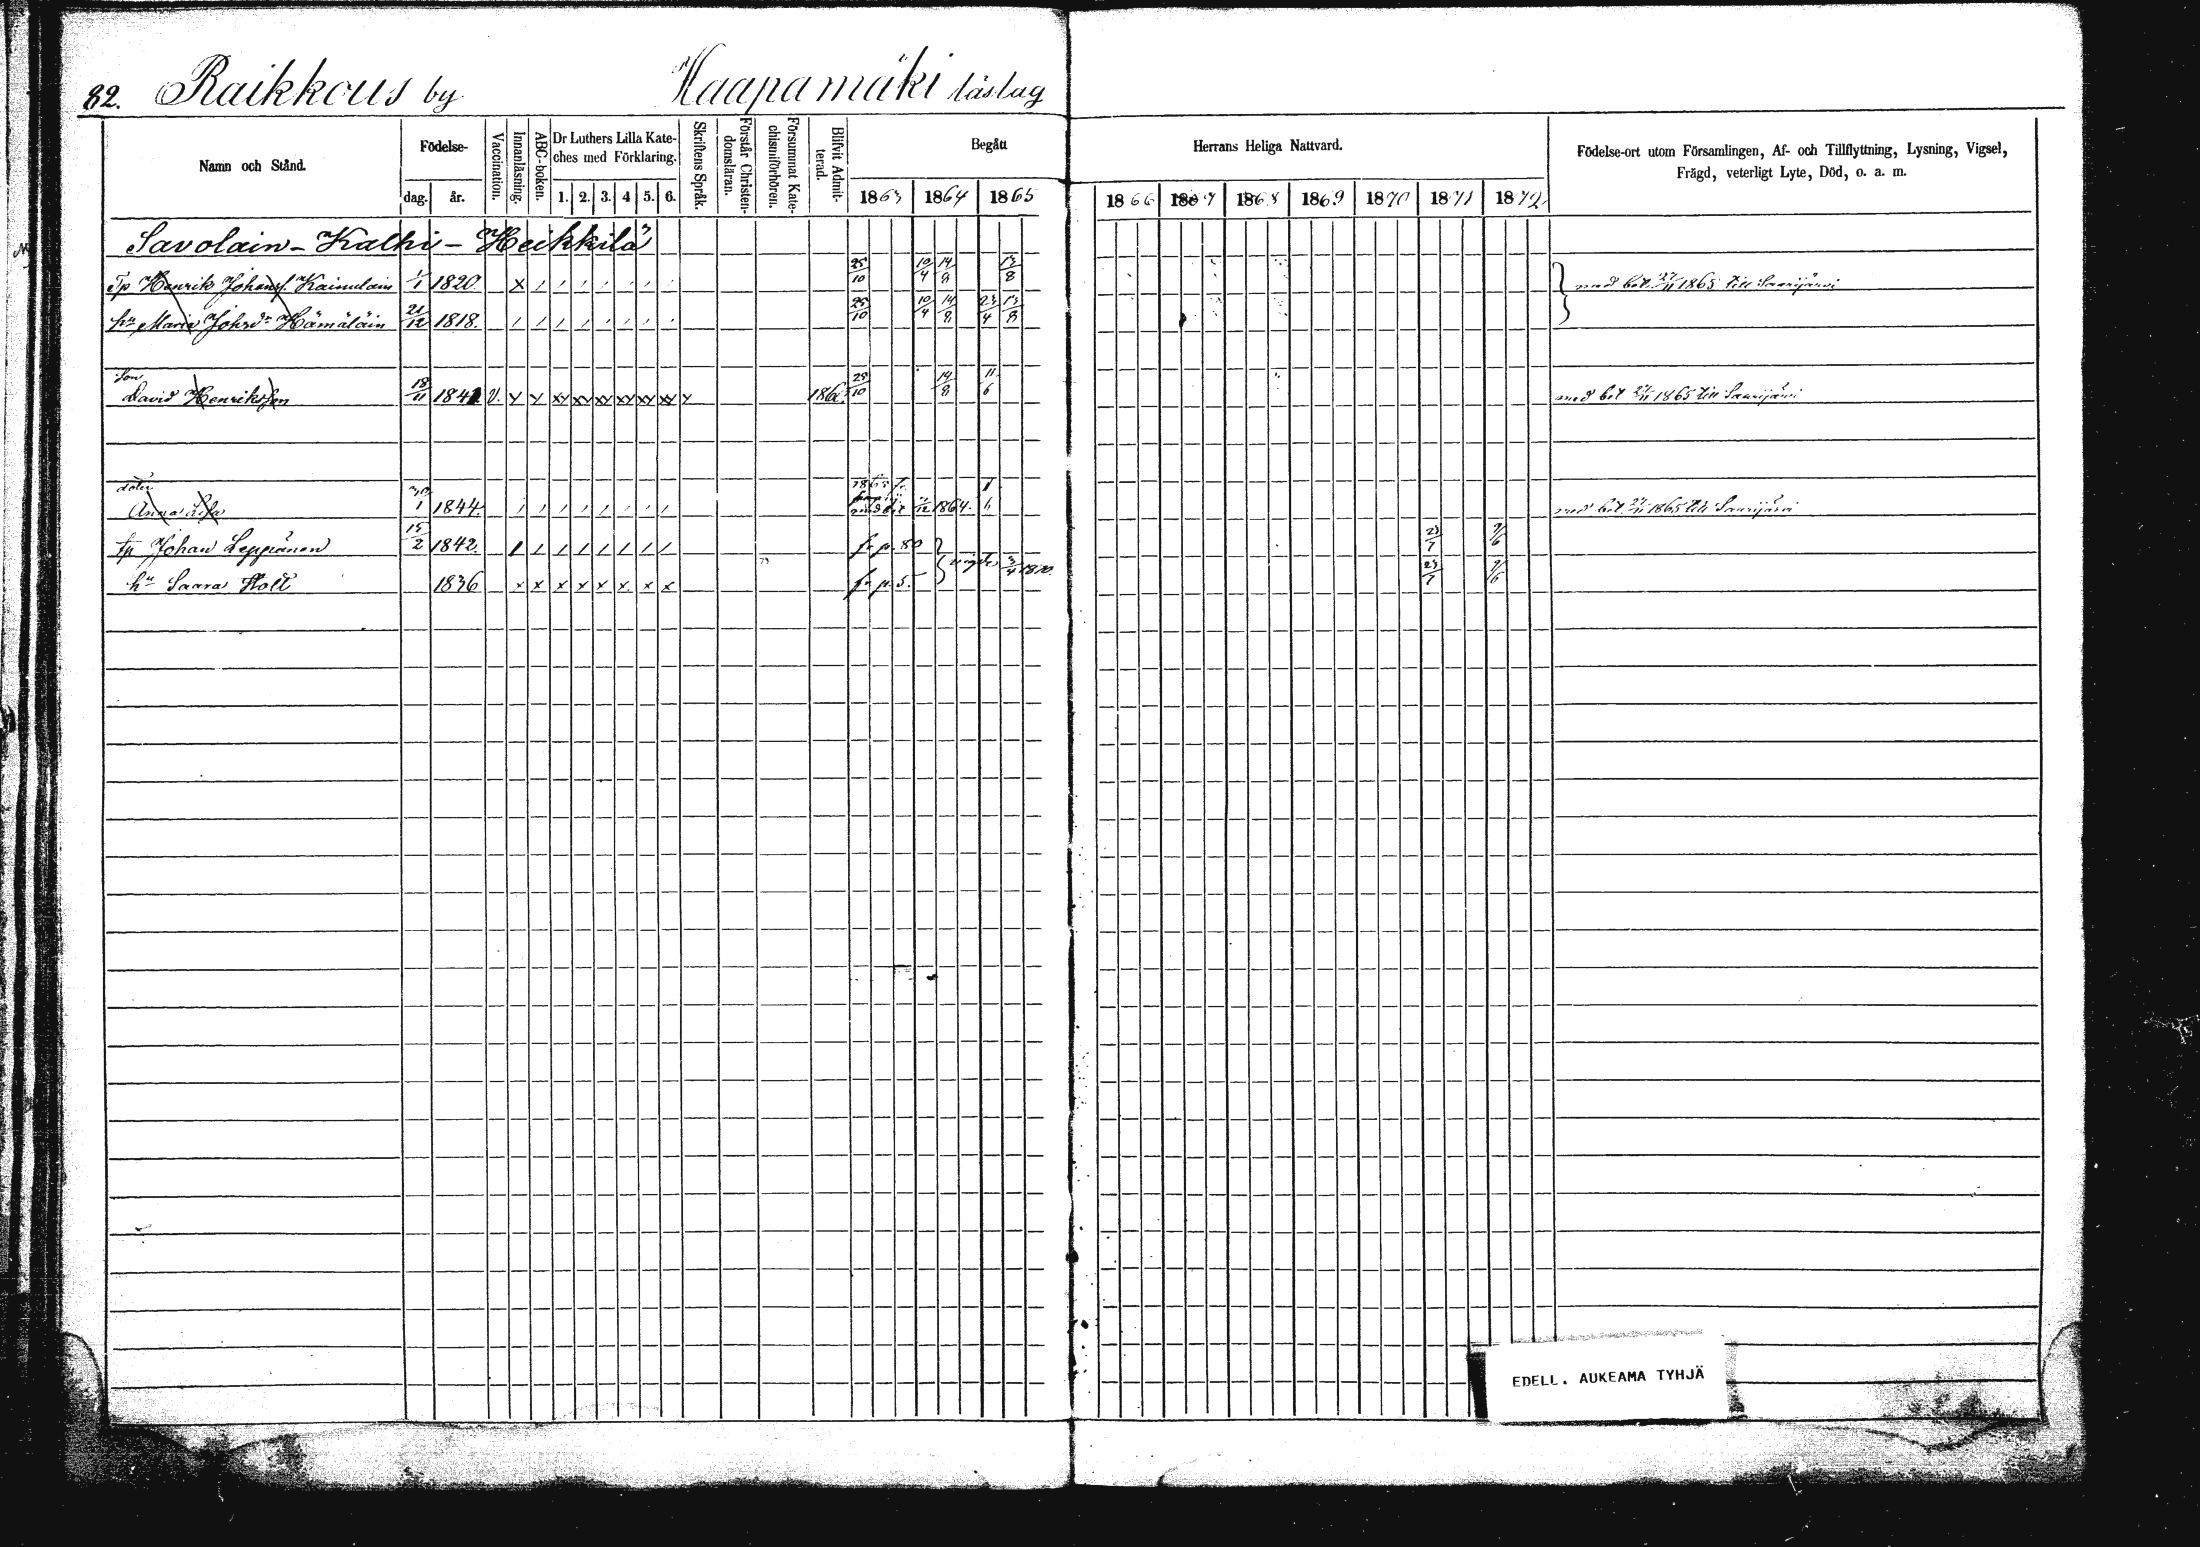 82. Raikkous by Haapamäki läslag
Namn och Stånd.
Födelse-
dag. år.
Vaccination.
Innanläsning.
ABC-boken.
Dr Luthers Lilla Kate-
ches med Förklaring.
1. 2. 3. 4 5. 6.
Skriftens Språk.
Förstår Christen-
domsläran.
Försummat Kate-
chismiförhören.
Blifvit Admit-
terad.
Begått
1863 1864 1865
Herrans Heliga Nattvard.
1866 1867 1868 1869 1870 1871 1872
Födelse-ort utom Församlingen, Af- och Tillflyttning, Lysning, Vigsel,
Frägd, veterligt Lyte, Död, o. a. m.
Savolain - Kalhi - Heikkilä
Tp Henrik Johanss. Kainulain 1/1 1820. 25/10 10/4 14/8 13/8 med bet. 27/11 1865 till Saarijärvi
hu Maria Johsdr Hämäläin 21/12 1818. 25/10 10/4 14/8 23/4 13/8
son
David Henriksson 18/11 1841 V. 25/10 14/8 11/6 med bet 27/11 1865 till Saarijärvi
doter
Anna Lisa 1844. 1864. med bet. 27/11 1865 till Saarijärvi
tp Johan Leppänen 15/2 1842. fr p. 80 23/7 9/6
hu Saara Holt 1836 fr p. 5. vigde 3/4 1870. 23/7 9/6
EDELL. AUKEAMA TYHJÄ